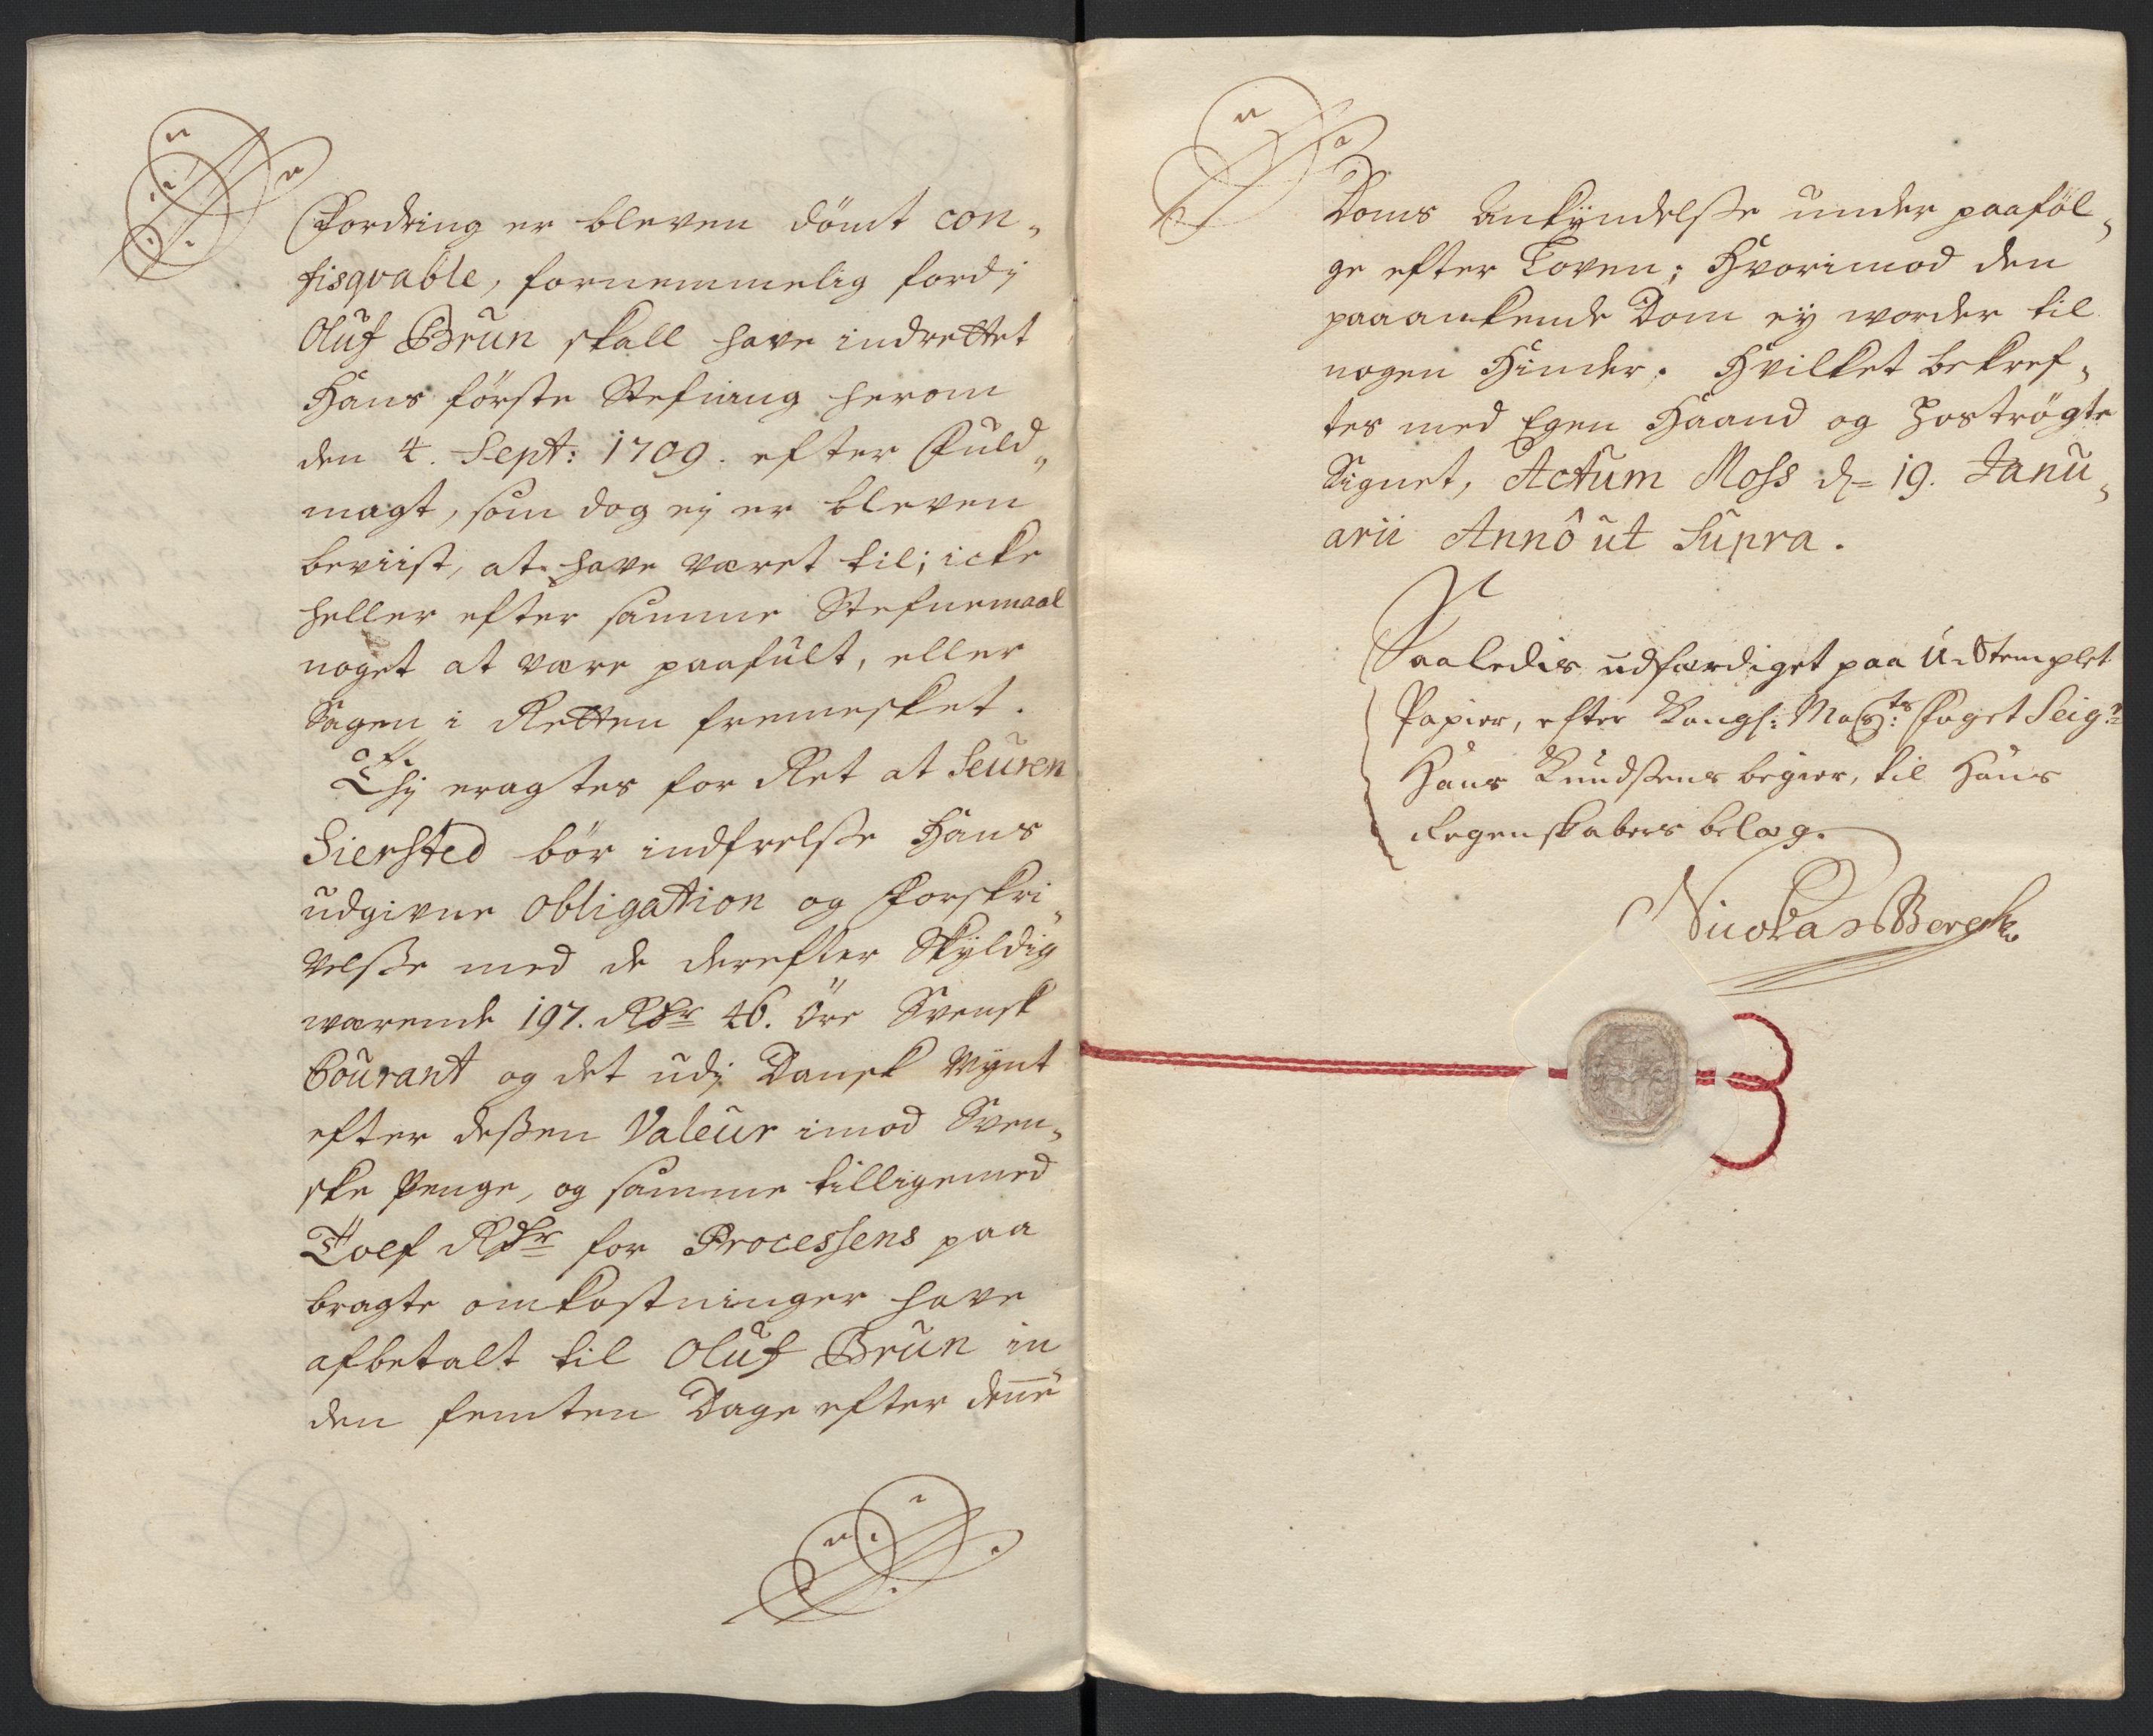 Fordring er bleven dömt con-
fisqvable, fornemmelig fordj
Oluf Brun skall have indrettet
Hans förste Stefning herom
den 4. Sept: 1709. efter Fuld-
magt, som dog ej er bleven
beviist, at have været til; icke
heller efter samme Stefnemaal
noget at være paafult, eller
Sagen i Retten fremesket.
Thj eragtes for Ret at Seuren
Siersted bör indfrelsse Hans
udgivne obligation og Forskri-
velsse med de derefter Skyldig
warende 197. Rdr 46. öre Svensk
Courant og det udj Dansk Mynt
efter dessen Valeur imod Sven-
ske Penge, og samme tilligemed
Tolf Rdr for Processens paa
bragte omkostninger have
afbetalt til Oluf Brun in-
den femten Dage efter denne
Doms Ankyndelsse under paaföl-
ge efter Loven; Hvorimod den
paaankende Dom ey worder til
nogen Hinder. Hvilket bekref-
tes med Egen Haand og hoströgte
Signet, Actum Moss d= 19. Janu-
arii Annô ut Supra.
Saaledis udfærdiget paa U-Stemplet
Papier, efter Kongl: Mayts: Foget Seigr
Hans Knudssens begier, til Hans
Regenskabers belæg.
Nicolas Berck